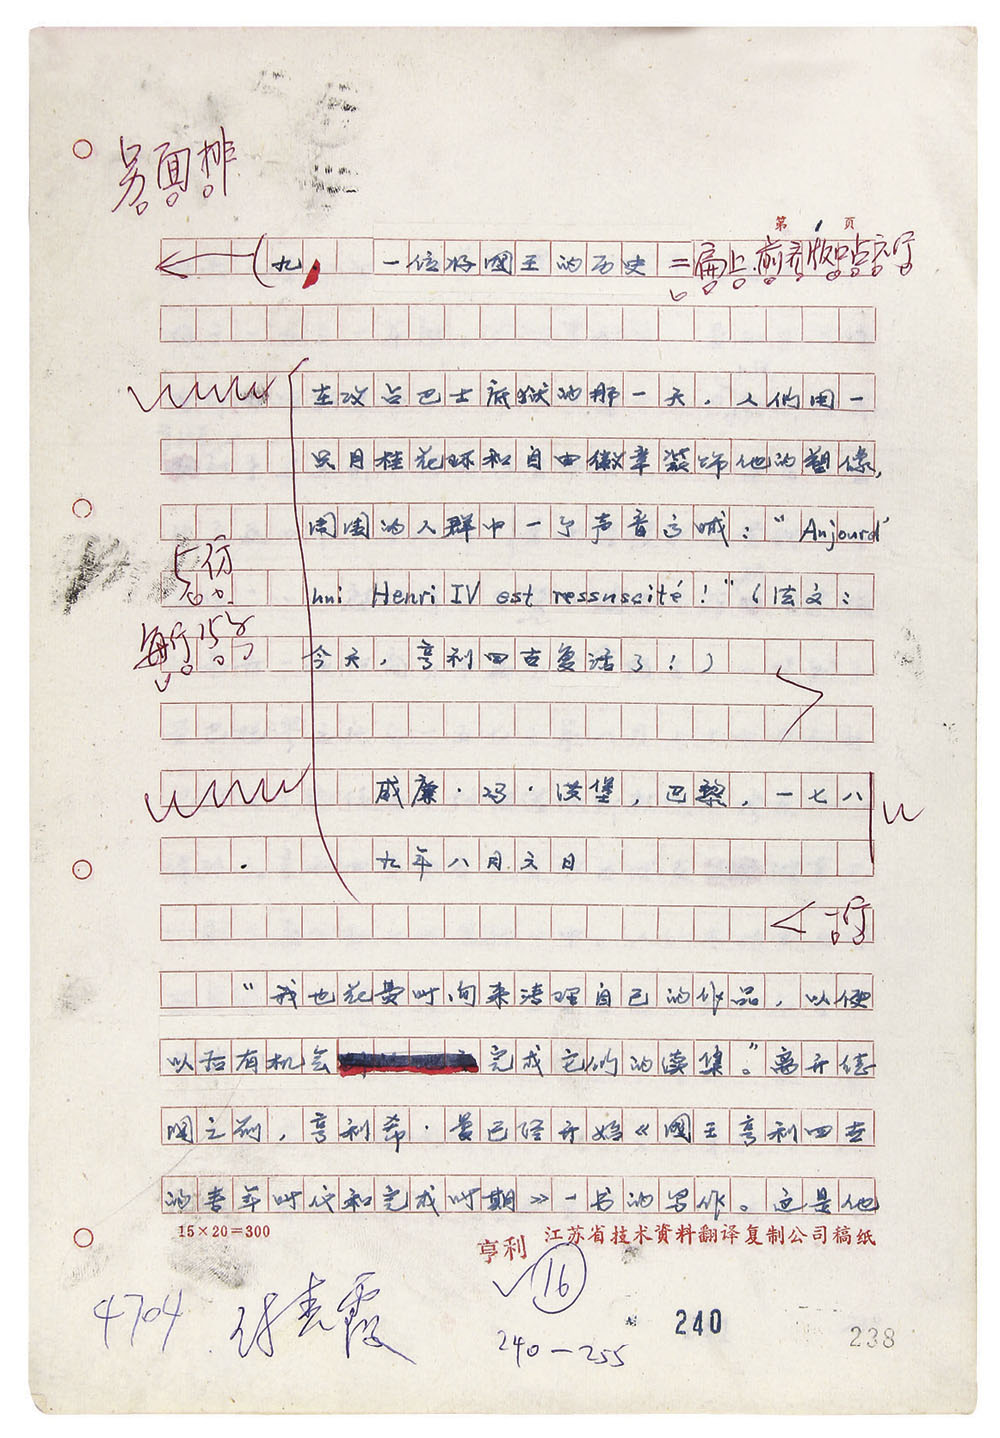 另面排
第 1 页
九、 一位好国王的历史 二扁上.前齐版口占六行
在攻占巴士底狱的那一天，人们用一
只月桂花环和自由徽章装饰他的塑像，
周围的人群中一个声音高喊：“Anjourd'
5仿
hui Henri IV est ressuscité！”（法文：
每行15字
今天，亨利四古复活了！）
威廉·冯·洪堡，巴黎，一七八
九年八月六日
一行
“我也花费时间来清理自己的作品，以便
以后有机会 完成它们的续集。”离开德
国之前，亨利希·曼已经开始《国王亨利四世
的青年时代和完成时期》一书的写作。这是他
15×20＝300
亨利 江苏省技术資料翻译复制公司稿纸
16
4704
240
240—255
238